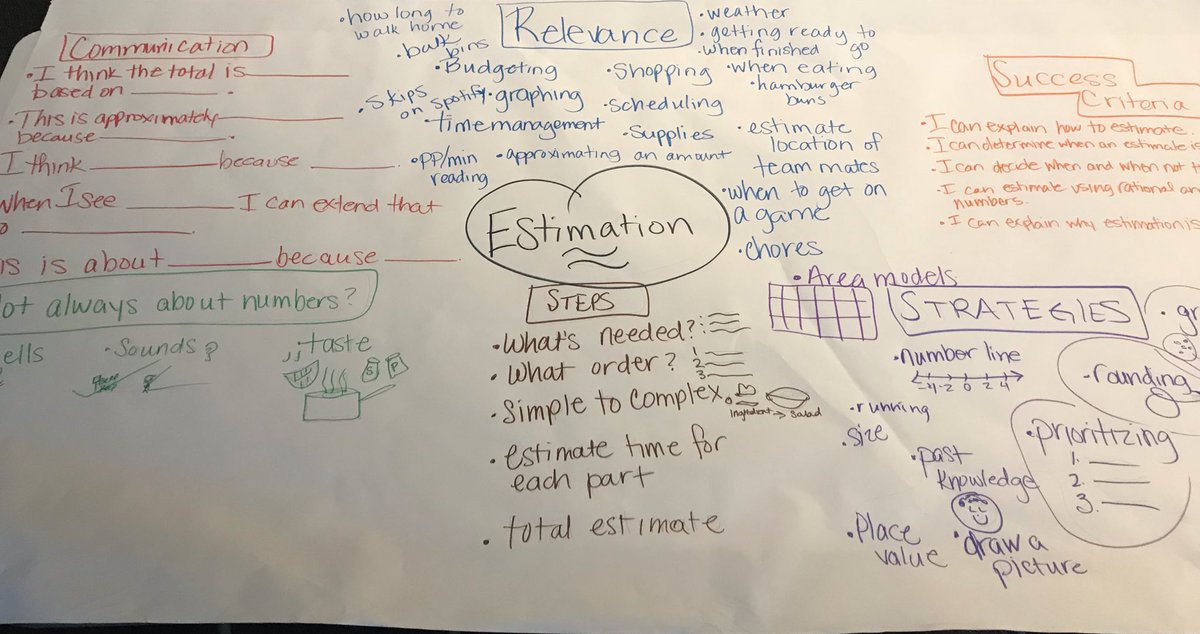 Communication
• I think the total is
based on .
• This is approximately
because .
I think because .
when I see I can extend that
.
is about because .
always about numbers?
• Sounds?
• taste
S P
• how long to
walk home
• bulk
bins
Relevance
• Budgeting
• Skips
on Spotify
• graphing
• time management
• PP/min
reading
• approximating an amount
• Shopping
• Scheduling
• Supplies
• weather
• getting ready to
go
• when finished
• when eating
• hamburger
buns
• estimate
location of
team mates
• when to get on
a game
• chores
Estimation
STEPS
• What's needed?
• What order? 1 2 3
• Simple to complex.
Ingredient → Salad
• estimate time for
each part
• total estimate
Success
Criteria
• I can explain how to estimate.
• I can determine when an estimate is
• I can decide when and when not
• I can estimate using rational
numbers.
• I can explain why estimation is
STRATEGIES
• Area models
• number line
-4 -2 0 2 4
• running
• size
• past
knowledge
• Place
value
• draw a
picture
• rounding
• prioritizing
1.
2.
3.